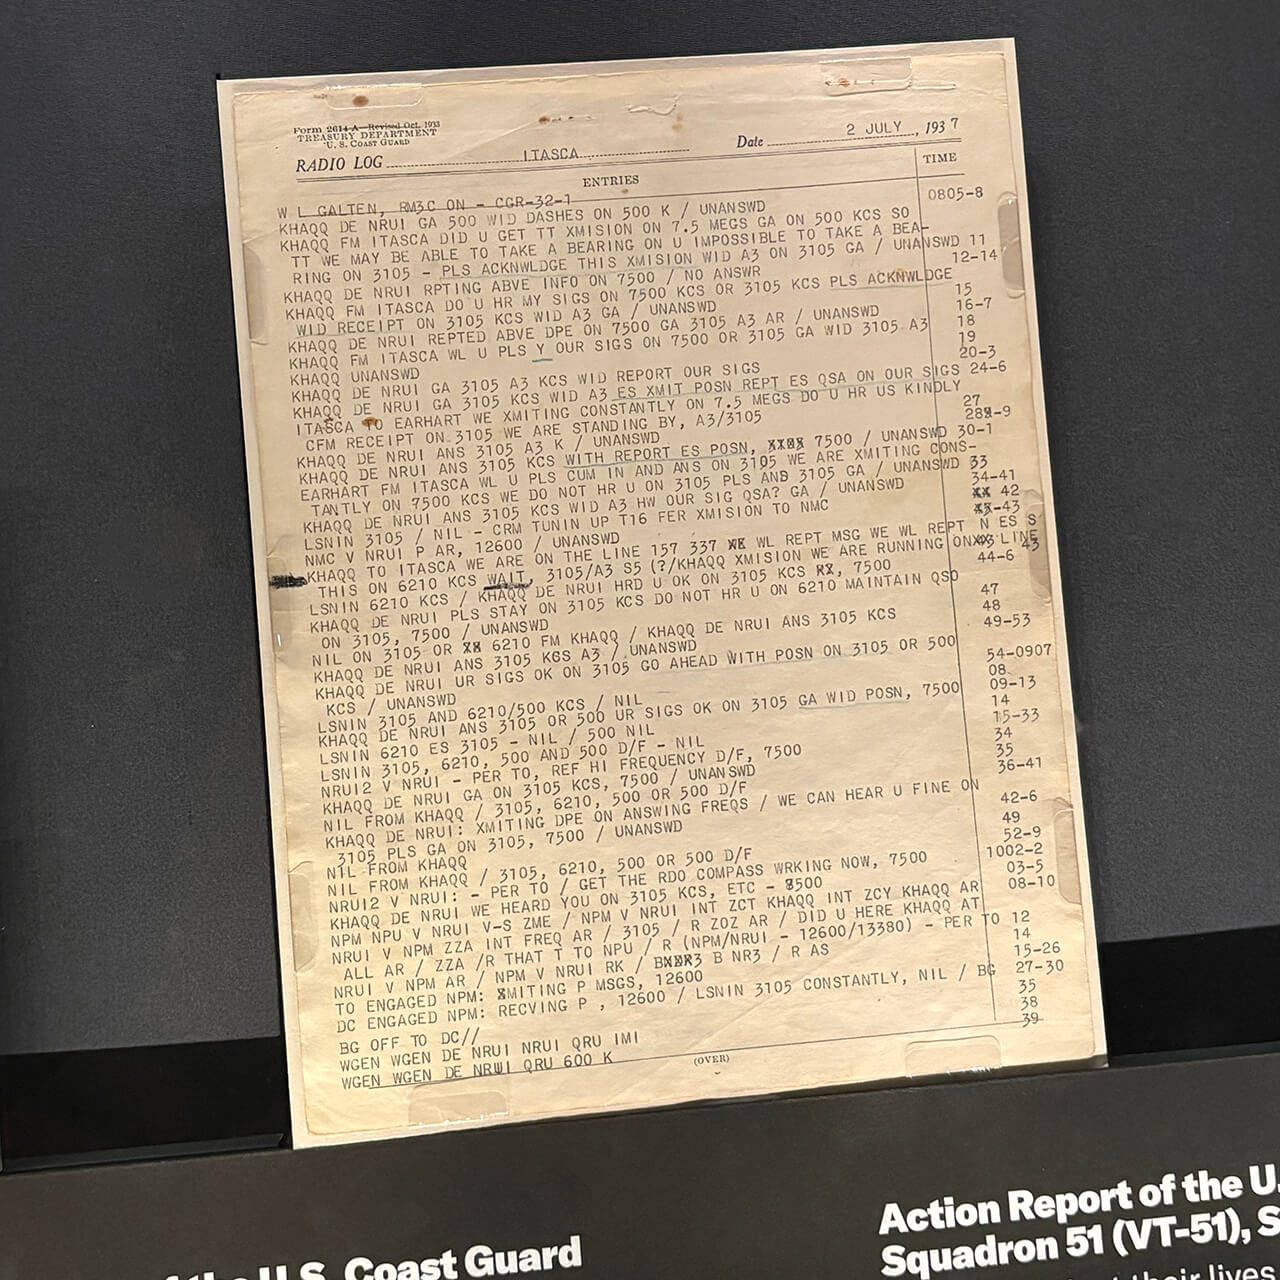 Form 2614-A—Revised Oct. 1933
TREASURY DEPARTMENT
U. S. COAST GUARD
RADIO LOG ITASCA Date 2 JULY, 1937
ENTRIES TIME
W L GALTEN, RM3C ON - CGR-32-1
KHAQQ DE NRUI GA 500 WID DASHES ON 500 K / UNANSWD 0805-8
KHAQQ FM ITASCA DID U GET TT XMISION ON 7.5 MEGS GA ON 500 KCS SO
TT WE MAY BE ABLE TO TAKE A BEARING ON U IMPOSSIBLE TO TAKE A BEA-
RING ON 3105 - PLS ACKNWLDGE THIS XMISION WID A3 ON 3105 GA / UNANSWD 11
KHAQQ DE NRUI RPTING ABVE INFO ON 7500 / NO ANSWR 12-14
KHAQQ FM ITASCA DO U HR MY SIGS ON 7500 KCS OR 3105 KCS PLS ACKNWLDGE
WID RECEIPT ON 3105 KCS WID A3 GA / UNANSWD 15
KHAQQ DE NRUI REPTED ABVE DPE ON 7500 GA 3105 A3 AR / UNANSWD 16-7
KHAQQ FM ITASCA WL U PLS Y OUR SIGS ON 7500 OR 3105 GA WID 3105 A3 18
KHAQQ UNANSWD 19
KHAQQ DE NRUI GA 3105 A3 KCS WID REPORT OUR SIGS 20-3
KHAQQ DE NRUI GA 3105 KCS WID A3 ES XMIT POSN REPT ES QSA ON OUR SIGS 24-6
ITASCA TO EARHART WE XMITING CONSTANTLY ON 7.5 MEGS DO U HR US KINDLY
CFM RECEIPT ON 3105 WE ARE STANDING BY, A3/3105 27
KHAQQ DE NRUI ANS 3105 A3 K / UNANSWD 28-9
KHAQQ DE NRUI ANS 3105 KCS WITH REPORT ES POSN, XXXX 7500 / UNANSWD 30-1
EARHART FM ITASCA WL U PLS CUM IN AND ANS ON 3105 WE ARE XMITING CONS-
TANTLY ON 7500 KCS WE DO NOT HR U ON 3105 PLS AND 3105 GA / UNANSWD 33
KHAQQ DE NRUI ANS 3105 KCS WID A3 HW OUR SIG QSA? GA / UNANSWD 34-41
LSNIN 3105 / NIL - CRM TUNIN UP T16 FER XMISION TO NMC XX 42
NMC V NRUI P AR, 12600 / UNANSWD XX-43
KHAQQ TO ITASCA WE ARE ON THE LINE 157 337 XX WL REPT MSG WE WL REPT N ES S
THIS ON 6210 KCS WAIT, 3105/A3 S5 (?/KHAQQ XMISION WE ARE RUNNING ON XX LINE 43
LSNIN 6210 KCS / KHAQQ DE NRUI HRD U OK ON 3105 KCS RX, 7500 44-6
KHAQQ DE NRUI PLS STAY ON 3105 KCS DO NOT HR U ON 6210 MAINTAIN QSO
ON 3105, 7500 / UNANSWD 47
NIL ON 3105 OR XX 6210 FM KHAQQ / KHAQQ DE NRUI ANS 3105 KCS 48
KHAQQ DE NRUI ANS 3105 KCS A3 / UNANSWD 49-53
KHAQQ DE NRUI UR SIGS OK ON 3105 GO AHEAD WITH POSN ON 3105 OR 500
KCS / UNANSWD 54-0907
LSNIN 3105 AND 6210/500 KCS / NIL 08
KHAQQ DE NRUI ANS 3105 OR 500 UR SIGS OK ON 3105 GA WID POSN, 7500 09-13
LSNIN 6210 ES 3105 - NIL / 500 NIL 14
LSNIN 3105, 6210, 500 AND 500 D/F - NIL 15-33
NRUI2 V NRUI - PER TO, REF HI FREQUENCY D/F, 7500 34
KHAQQ DE NRUI GA ON 3105 KCS, 7500 / UNANSWD 35
NIL FROM KHAQQ / 3105, 6210, 500 OR 500 D/F 36-41
KHAQQ DE NRUI: XMITING DPE ON ANSWING FREQS / WE CAN HEAR U FINE ON
3105 PLS GA ON 3105, 7500 / UNANSWD 42-6
NIL FROM KHAQQ 49
NIL FROM KHAQQ / 3105, 6210, 500 OR 500 D/F 52-9
NRUI2 V NRUI: - PER TO / GET THE RDO COMPASS WRKING NOW, 7500 1002-2
KHAQQ DE NRUI WE HEARD YOU ON 3105 KCS, ETC - 8500 03-5
NPM NPU V NRUI V-S ZME / NPM V NRUI INT ZCT KHAQQ INT ZCY KHAQQ AR 08-10
NRUI V NPM ZZA INT FREQ AR / 3105 / R ZOZ AR / DID U HERE KHAQQ AT
ALL AR / ZZA /R THAT T TO NPU / R (NPM/NRUI - 12600/13380) - PER TO 12
NRUI V NPM AR / NPM V NRUI RK / BNXR3 B NR3 / R AS 14
TO ENGAGED NPM: XMITING P MSGS, 12600 15-26
DC ENGAGED NPM: RECVING P , 12600 / LSNIN 3105 CONSTANTLY, NIL / BG 27-30
BG OFF TO DC// 35
WGEN WGEN DE NRUI NRUI QRU IMI 38
WGEN WGEN DE NRUI QRU 600 K 39
(OVER)
the U.S. Coast Guard
Action Report of the U.
Squadron 51 (VT-51), S
their lives